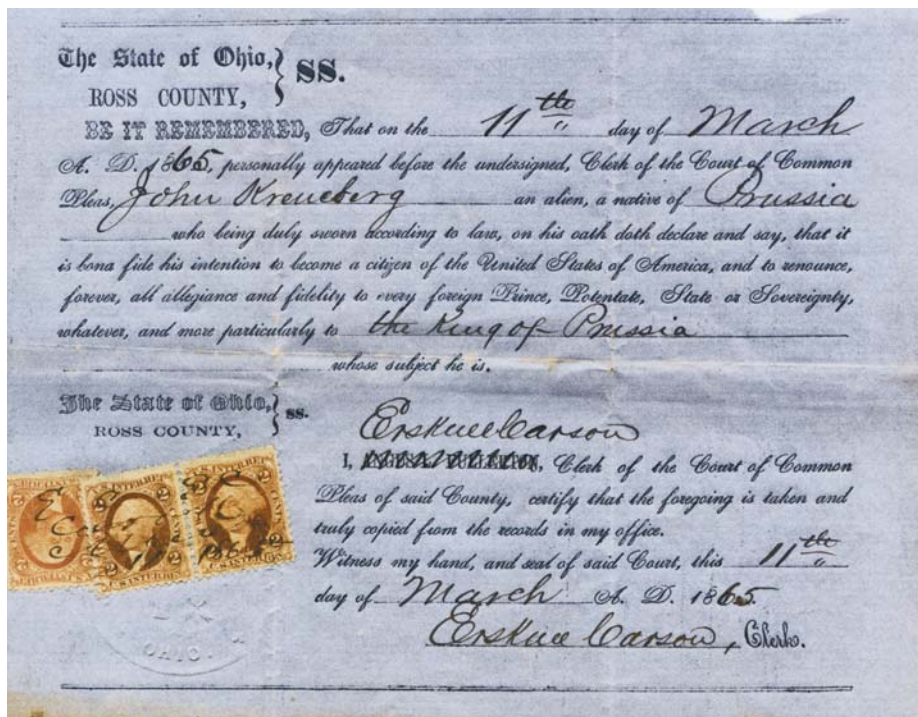 The State of Ohio, } SS.
ROSS COUNTY,
BE IT REMEMBERED, That on the 11th day of March
A. D. 1865, personally appeared before the undersigned, Clerk of the Court of Common
Pleas, John Kreueberg an alien, a native of Prussia
who being duly sworn according to law, on his oath doth declare and say, that it
is bona fide his intention to become a citizen of the United States of America, and to renounce,
forever, all allegiance and fidelity to every foreign Prince, Potentate, State or Sovereignty,
whatever, and more particularly to the King of Prussia
whose subject he is.
The State of Ohio, } ss.
ROSS COUNTY,
Erskine Carson
I, Clerk of the Court of Common
Pleas of said County, certify that the foregoing is taken and
truly copied from the records in my office.
Witness my hand, and seal of said Court, this 11th
day of March A. D. 1865.
Erskine Carson, Clerk.
U.S. INTER. REV.
2 CENTS 2
OHIO